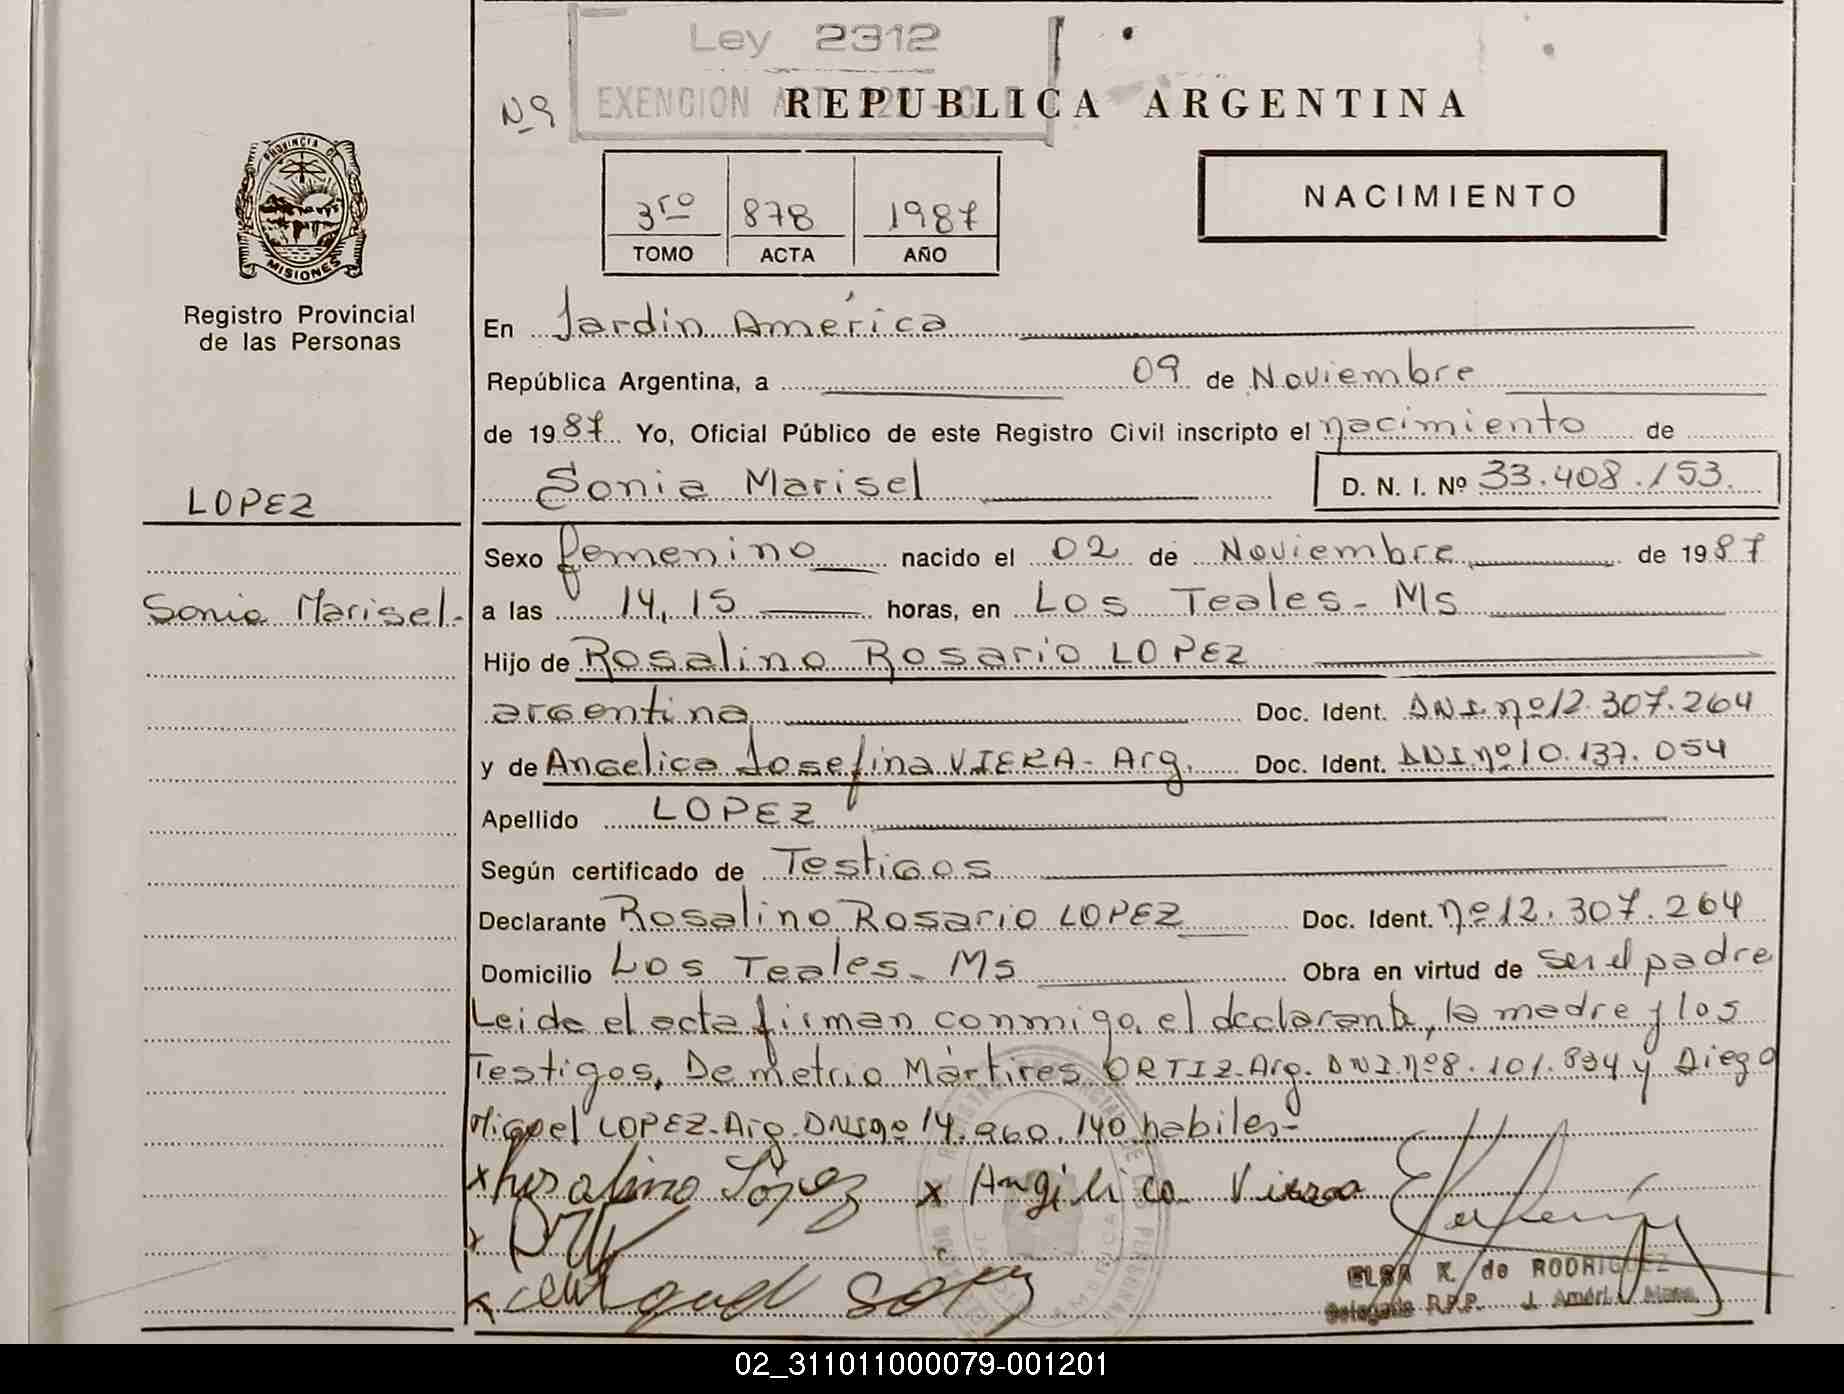 Ley 2312
EXENCION ART
Nº
REPUBLICA ARGENTINA
NACIMIENTO
3ro 878 1987
TOMO ACTA AÑO
PROVINCIA DE
MISIONES
Registro Provincial
de las Personas
LOPEZ
Sonia Marisel.
En Jardín América
República Argentina, a 09 de Noviembre
de 1987 Yo, Oficial Público de este Registro Civil inscripto el nacimiento de
Sonia Marisel D. N. I. Nº 33.408.153.
Sexo femenino nacido el 02 de Noviembre de 1987
a las 14,15 horas, en Los Teales - Ms
Hijo de Rosalino Rosario LOPEZ
argentina Doc. Ident. DNI. nº 12.307.264
y de Angelica Josefina VIERA - Arg. Doc. Ident. DNI. nº 10.137.054
Apellido LOPEZ
Según certificado de Testigos
Declarante Rosalino Rosario LOPEZ Doc. Ident. nº 12.307.264
Domicilio Los Teales - Ms Obra en virtud de ser el padre
Leida el acta firman conmigo, el declarante, la madre y los
Testigos, Demetrio Mártires ORTIZ - Arg. DNI. nº 8.101.834 y Diego
Miguel LOPEZ - Arg. DNI nº 14.960.140 habiles -
x Rosalino López x Angélica Viera
x
x Miguel Lopez
ELSA K. de RODRIGUEZ
Delegada R.P.P. J. Améri. Mnes.
02_311011000079-001201